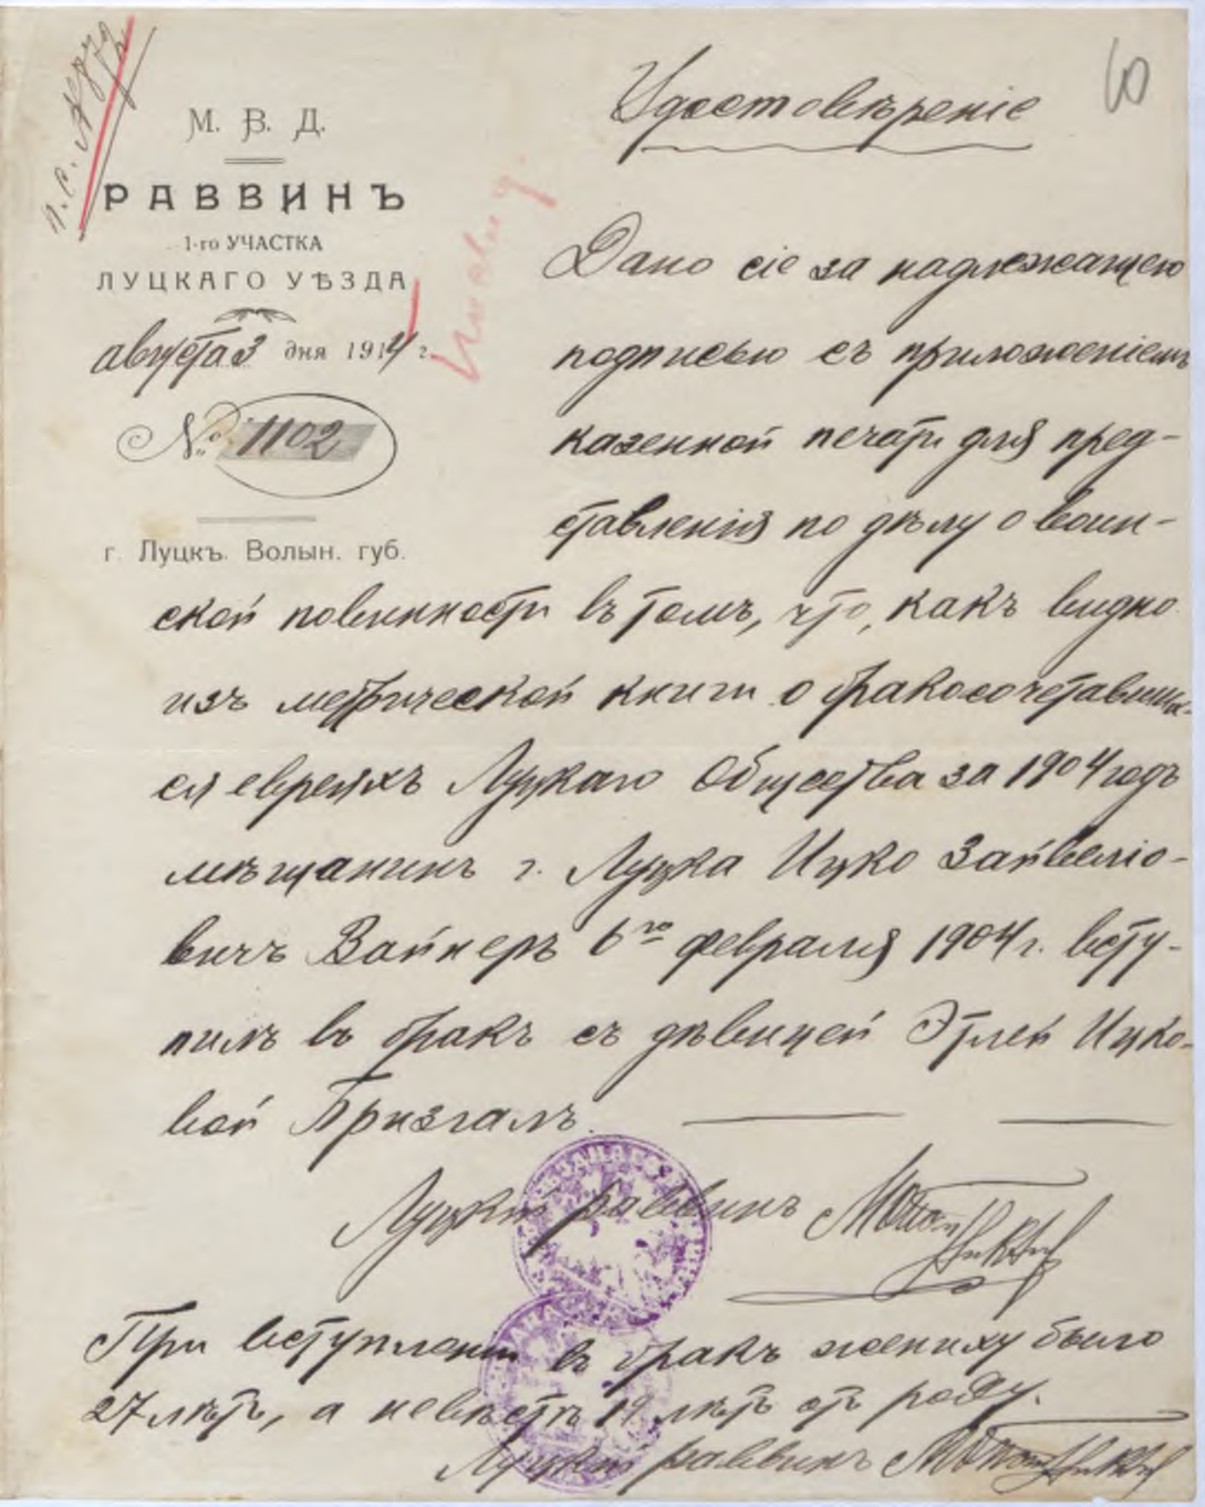 60
М. В. Д.
РАВВИНЪ
1-го УЧАСТКА
ЛУЦКАГО УѢЗДА
августа 3 дня 1914 г.
№ 1102
г. Луцкъ. Волын. губ.
Удостовѣреніе
Дано сіе за надлежащею
подписью съ приложеніемъ
казенной печати для пред-
ставленія по дѣлу о воин-
ской повинности въ томъ, что, какъ видно
изъ метрической книги о бракосочетавших-
ся евреяхъ Луцкаго Общества за 1904 годъ
мѣщанинъ г. Луцка Ицко Зайвеліо-
вичъ Вайнеръ 6го февраля 1904 г. всту-
пилъ въ бракъ съ дѣвицей Этлей Ицко-
вой Призгалъ.
Луцкій раввинъ
При вступленіи въ бракъ жениху было
27 лѣтъ, а невѣстѣ 19 лѣтъ отъ роду.
Луцкій раввинъ